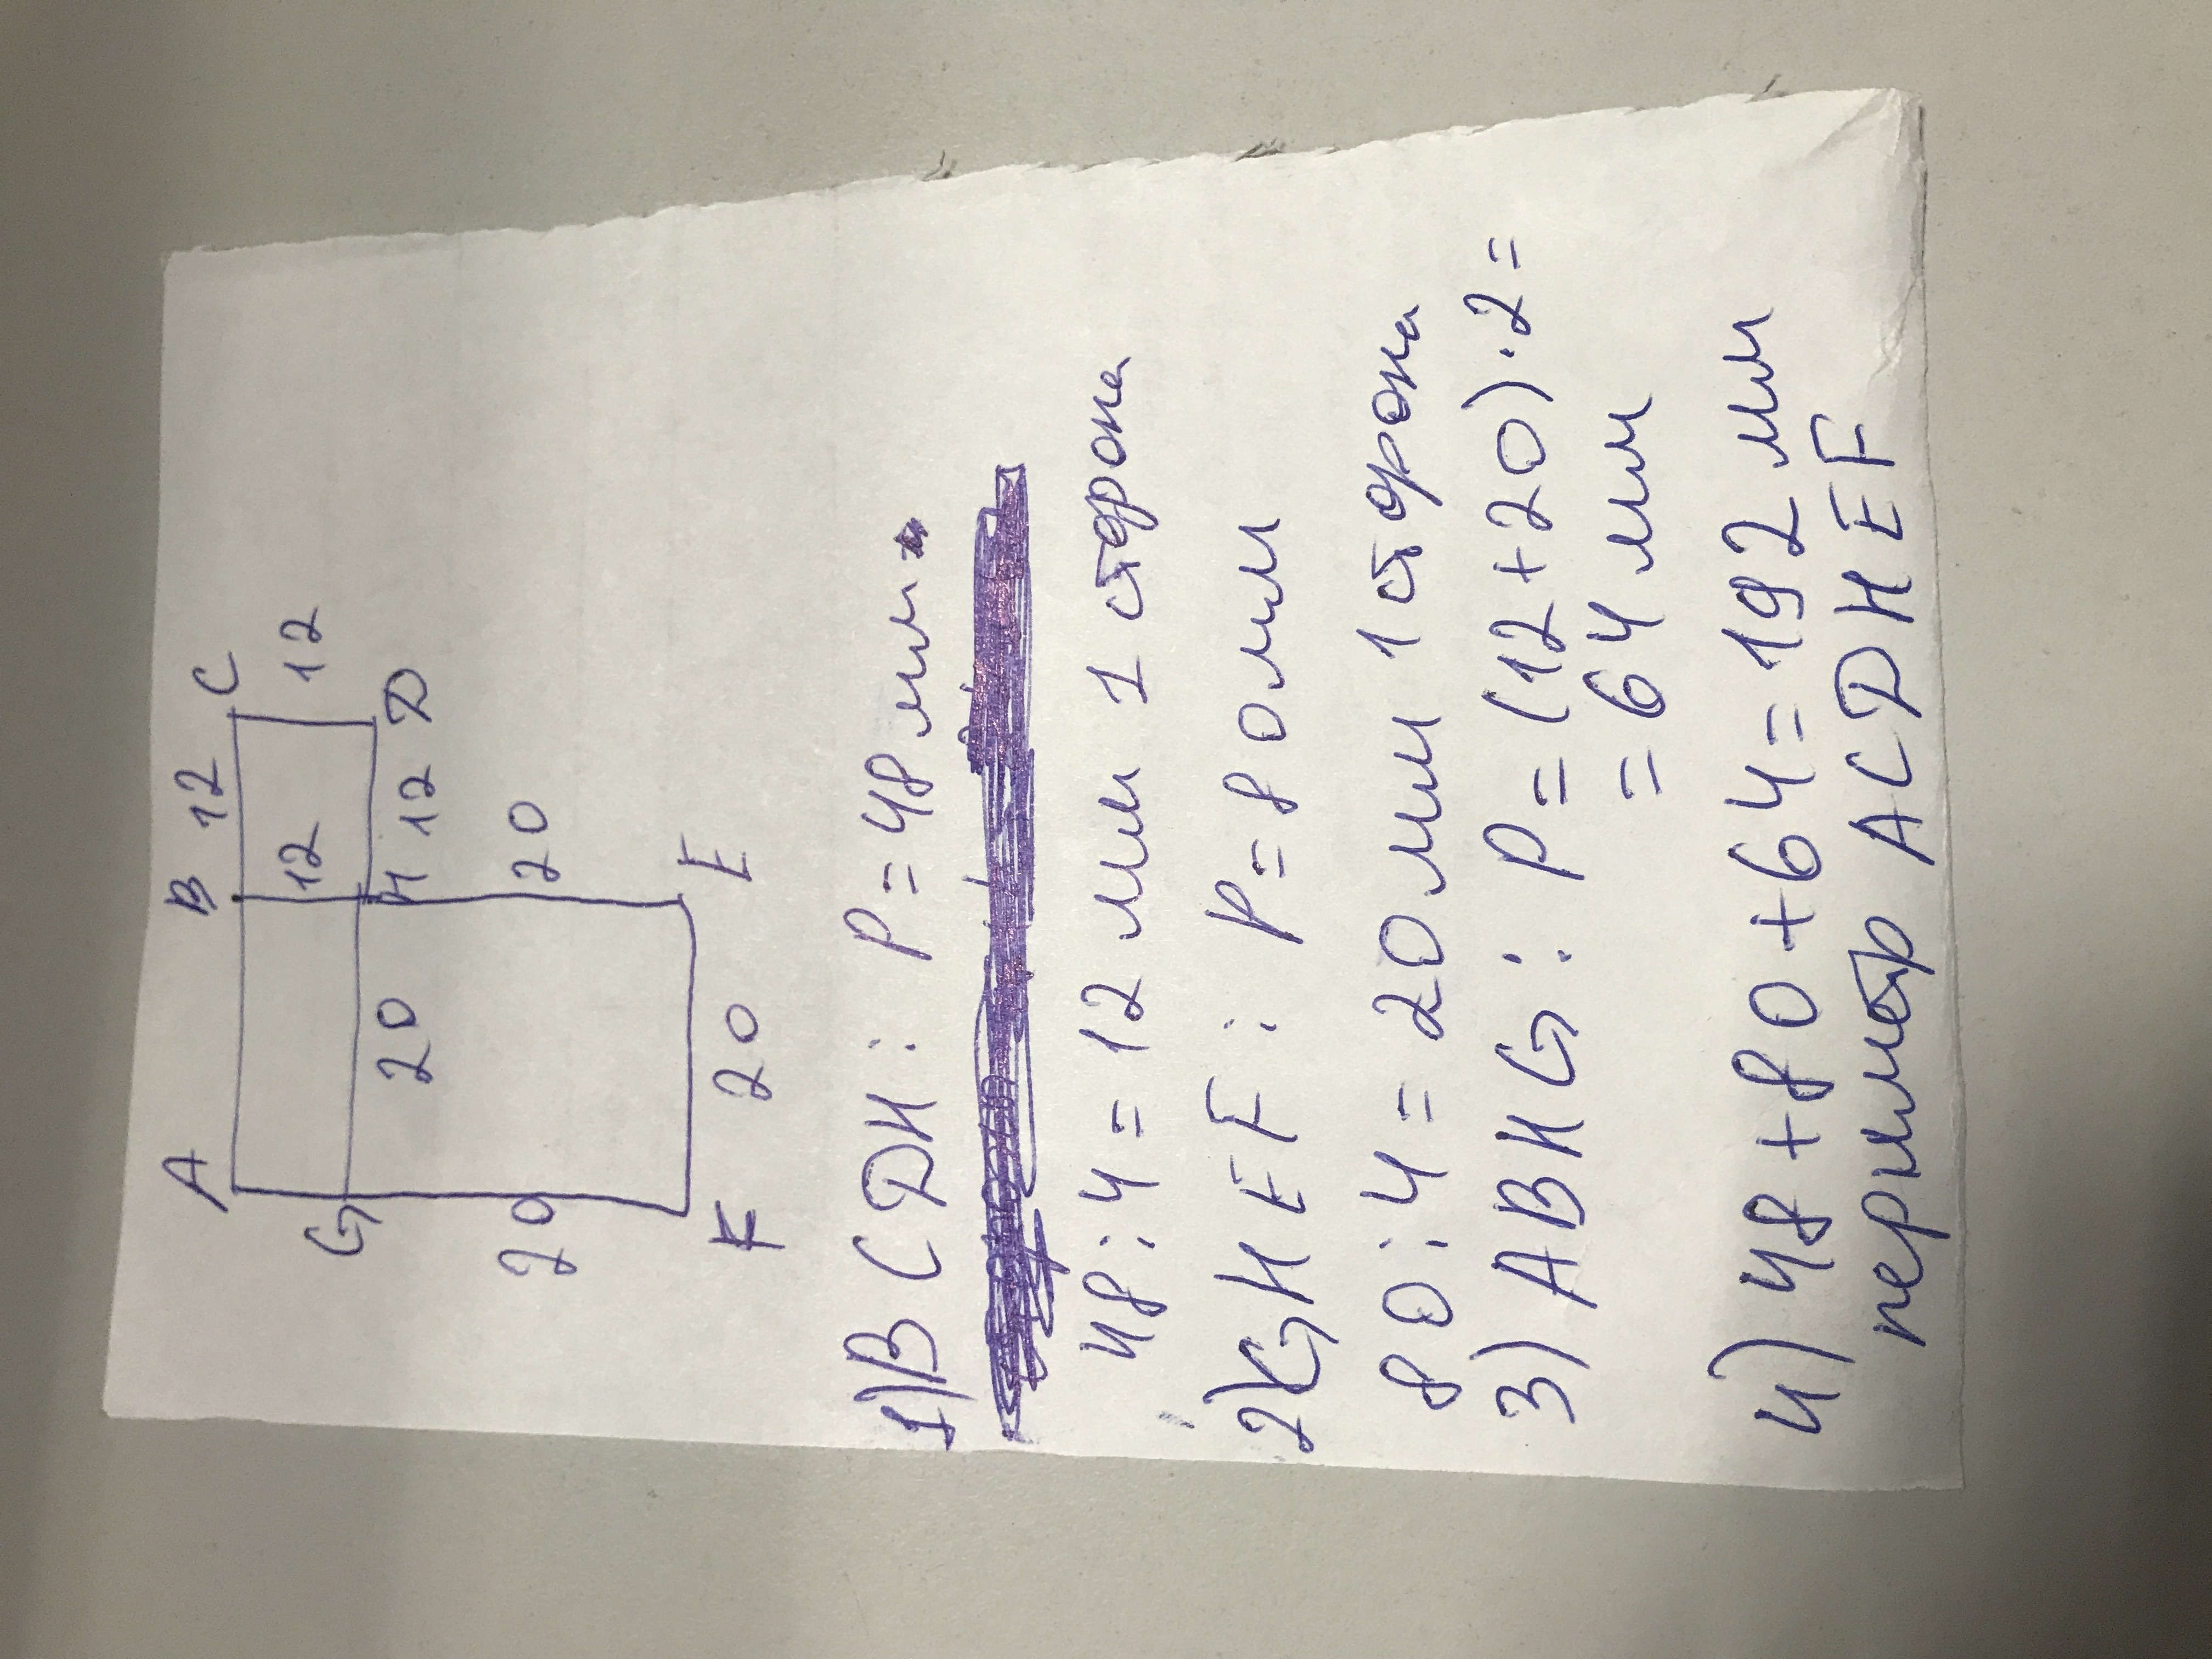 A B 12 C
12 12
G 20 H 12 D
20 20
F 20 E
1) BCDH : P = 48 мм
48 : 4 = 12 мм 1 сторона
2) GHEF : P = 80 мм
80 : 4 = 20 мм 1 сторона
3) ABHG : P = (12 + 20) · 2 =
= 64 мм
4) 48 + 80 + 64 = 192 мм
периметр ACDHEF